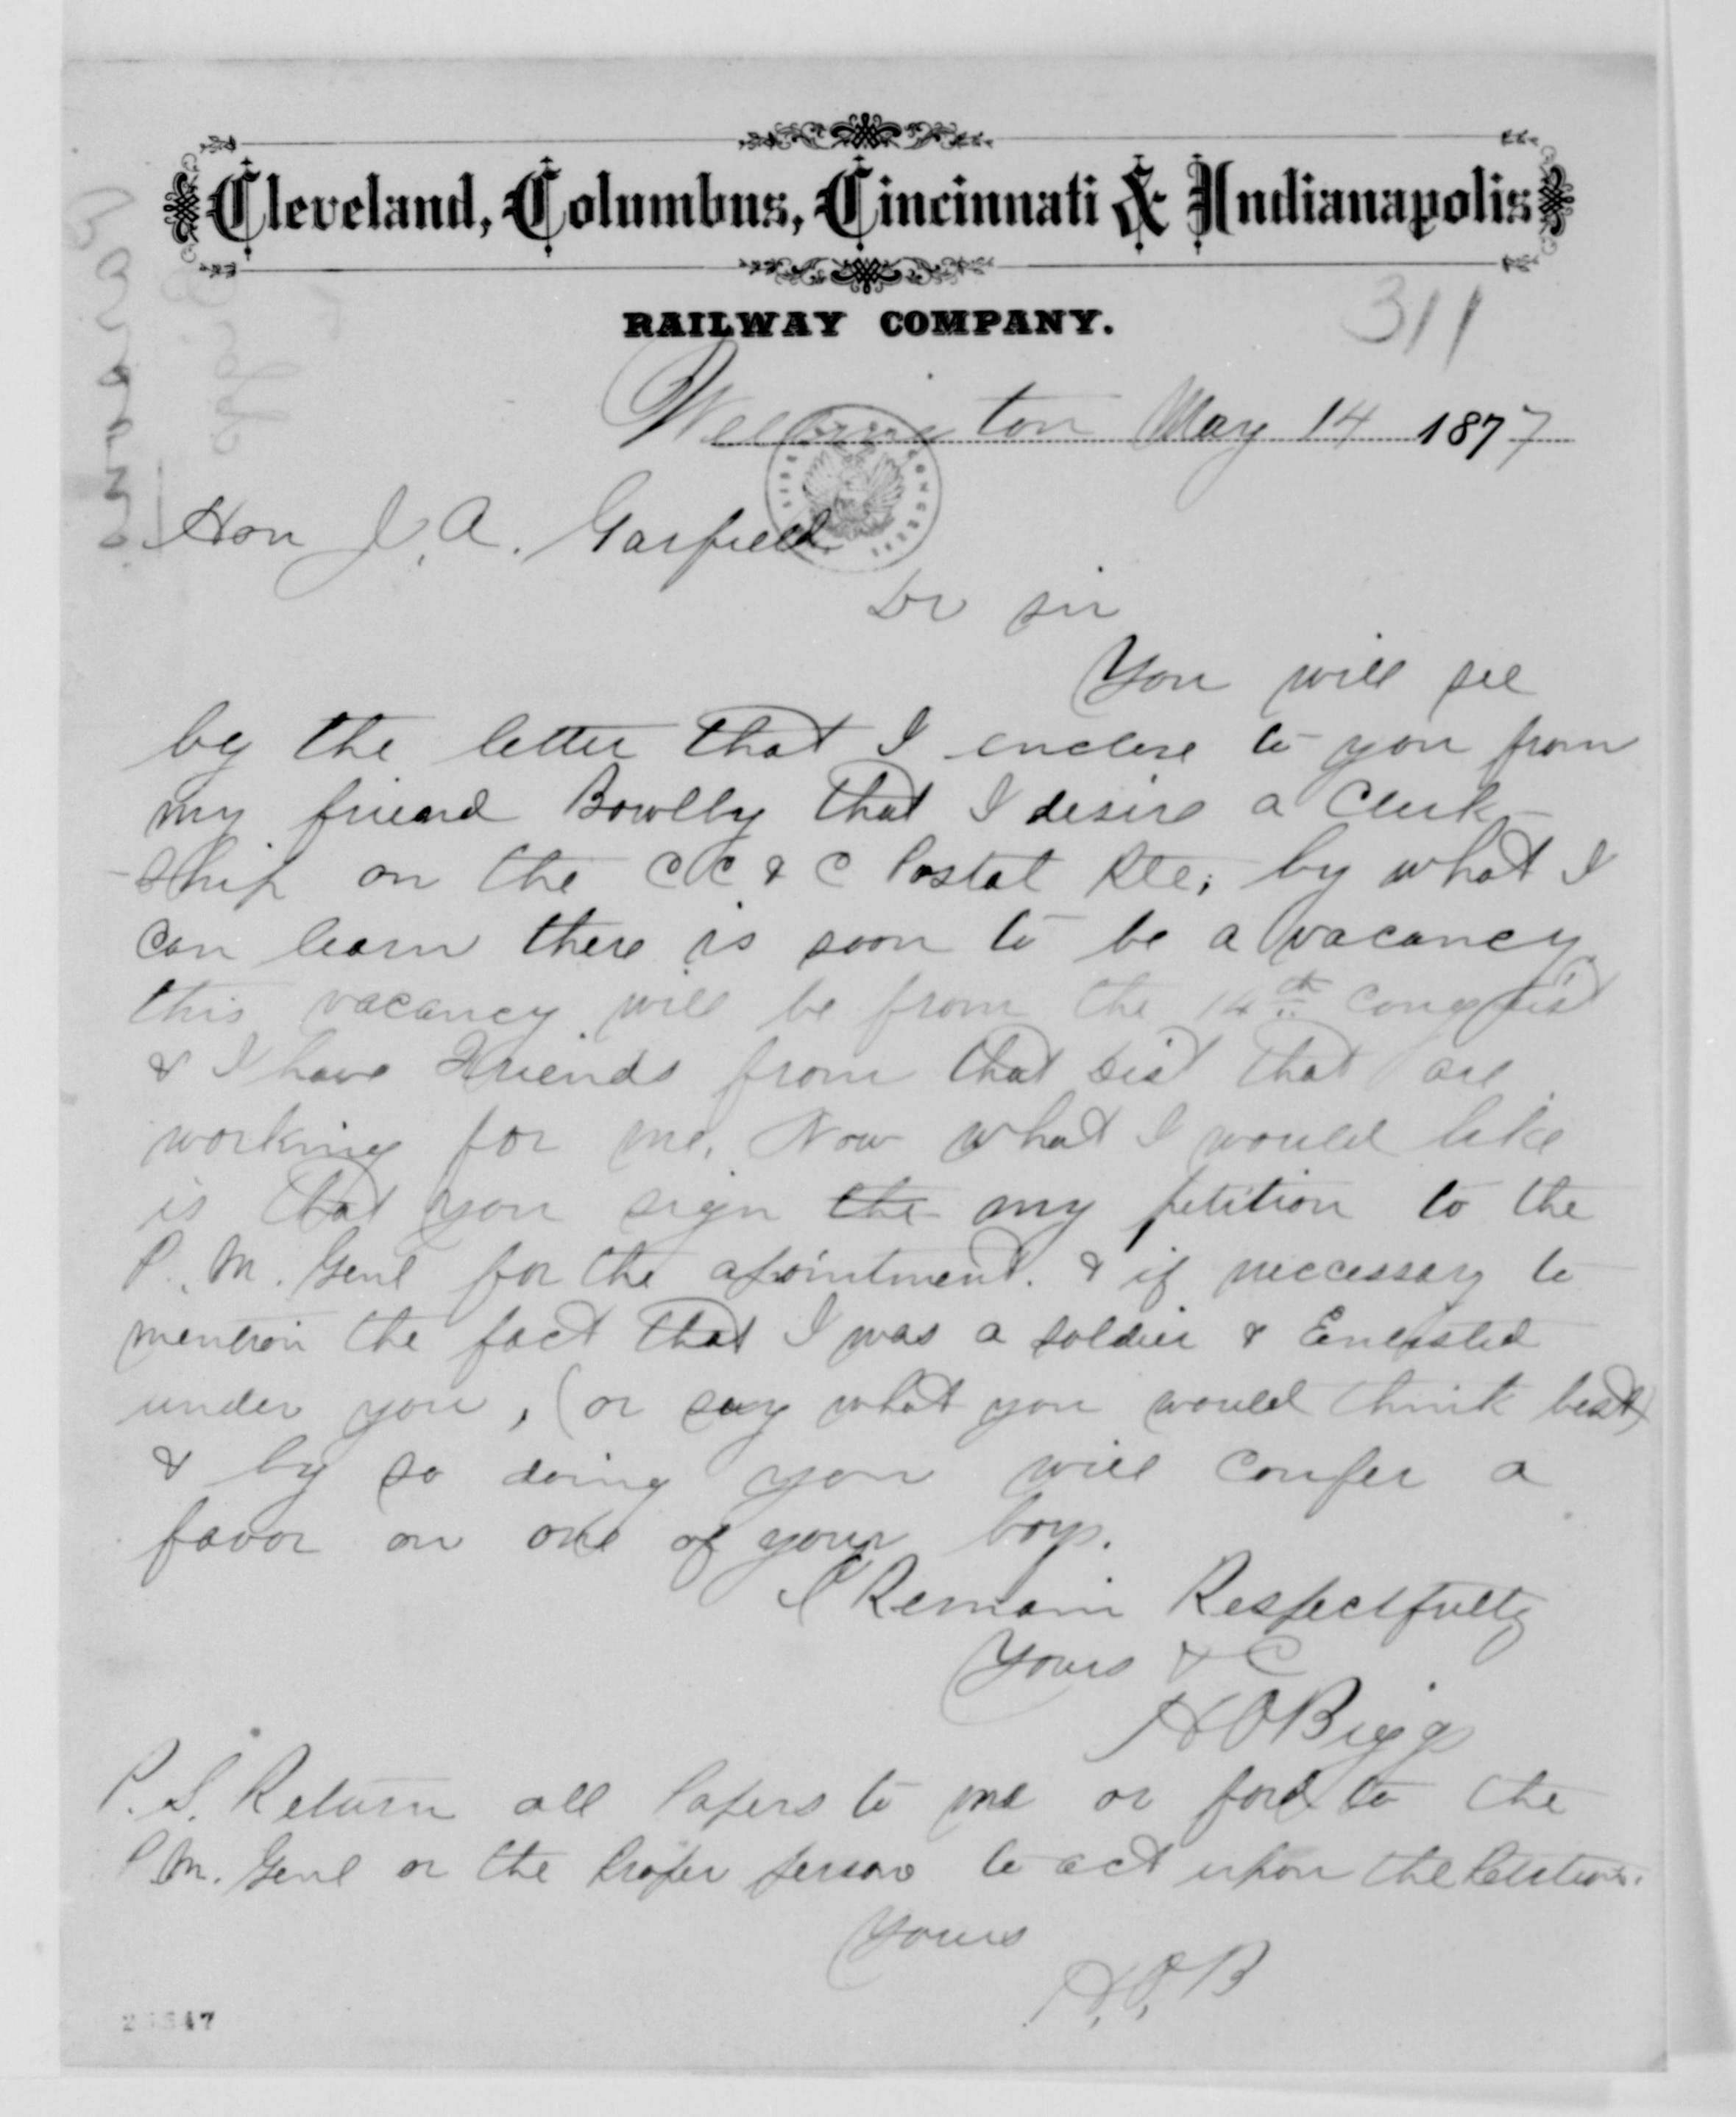 Cleveland, Columbus, Cincinnati & Indianapolis
RAILWAY COMPANY.
311
Wellington May 14 1877
Hon J. A. Garfield
Dr sir
You will see
by the letter that I enclose to you from
my friend Bowlby that I desire a Clerk-
-ship on the C C & C Postal Rte; by what I
can learn there is soon to be a vacancy
this vacancy will be from the 14th Cong dist
& I have Friends from that Dist that are
working for me. Now what I would like
is that you sign the my petition to the
P. M. Genl for the apointment. & if neccessary to
mention the fact that I was a soldier & Enlisted
under you, (or say what you would think best)
& by so doing you will confer a
favor on one of your boys.
I Remain Respectfully
Yours & C
H O Bigg
P. S. Return all Papers to me or ford to the
P M. Genl or the Proper person to act upon the Petition.
Yours
H. O. B